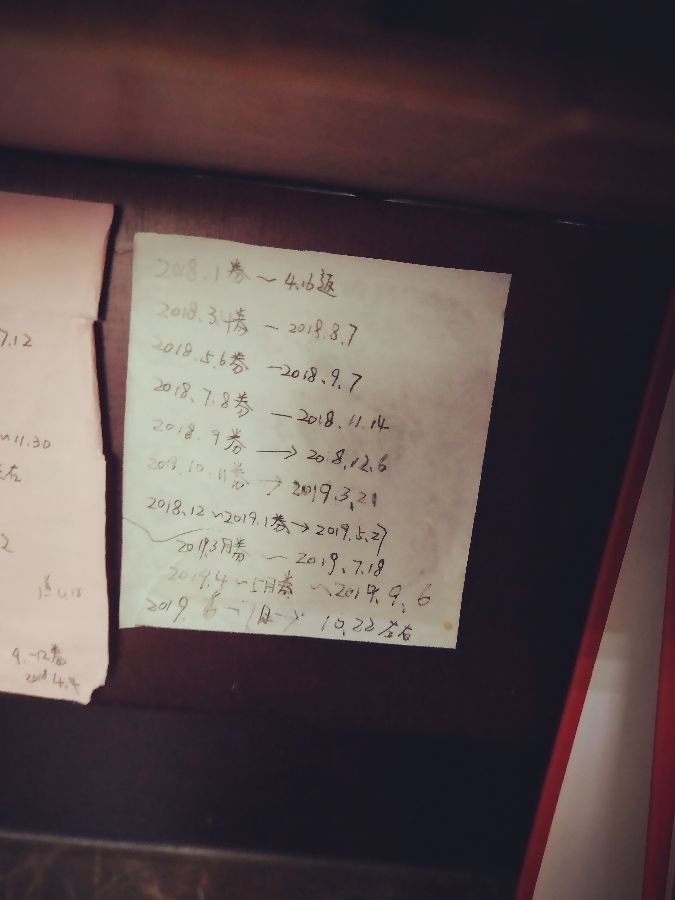 7.12
~11.30
左右
2
9.-12券
2018.4.4
2018.1券 ~ 4.16返
2018.3.4券 - 2018.8.7
2018.5.6券 - 2018.9.7
2018.7.8券 — 2018.11.14
2018.9券 → 2018.12.6
2018.10.11券 → 2019.3.21
2018.12~2019.1券→2019.5.27
2019.3月券 ~ 2019.7.18
2019.4~5月券 ~2019.9.6
2019.6-7月→ 10.22左右